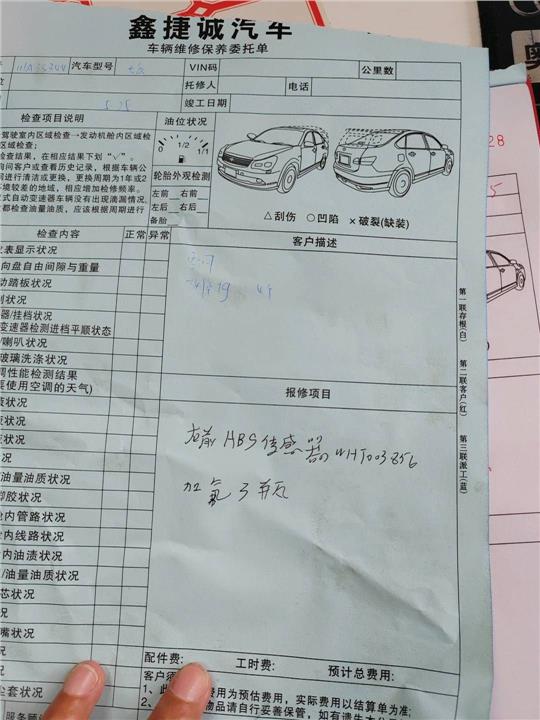 鑫捷诚汽车
车辆维修保养委托单
汽车型号
VIN码
公里数
托修人
电话
竣工日期
5.25
28
检查项目说明
油位状况
驾驶室内区域检查→发动机舱内区域检
区域检查;
检查结果，在相应结果下划“√”。
询问客户或查看历史记录，根据车辆公
间进行清洁或更换，更换周期为1年或2
环境较差的地域，相应增加检修频率。
式自动变速器车辆没有出现滴漏情况,
都检查油量油质，应该根据周期进行
0 1/2 1/1
轮胎外观检测
左前 右前
左后 右后
备胎
△刮伤 ○凹陷 ×破裂(缺装)
检查内容
正常 异常
客户描述
仪表显示状况
向盘自由间隙与重量
动踏板状况
器/挂档状况
变速器检测进档平顺状态
/喇叭状况
玻璃洗涤状况
调性能检测结果
要使用空调的天气)
报修项目
右前 ABS传感器 WHT003856
加氟3瓶
油量油质状况
脚胶状况
内管路状况
内线路状况
内油渍状况
/油量油质状况
芯状况
嘴状况
尘套状况
第一联存根(白)
第二联客户(红)
第三联派工(蓝)
配件费:
工时费:
预计总费用:
客户须
费用为预估费用，实际费用以结算单为准;
物品请自行妥善保管，如有遗失